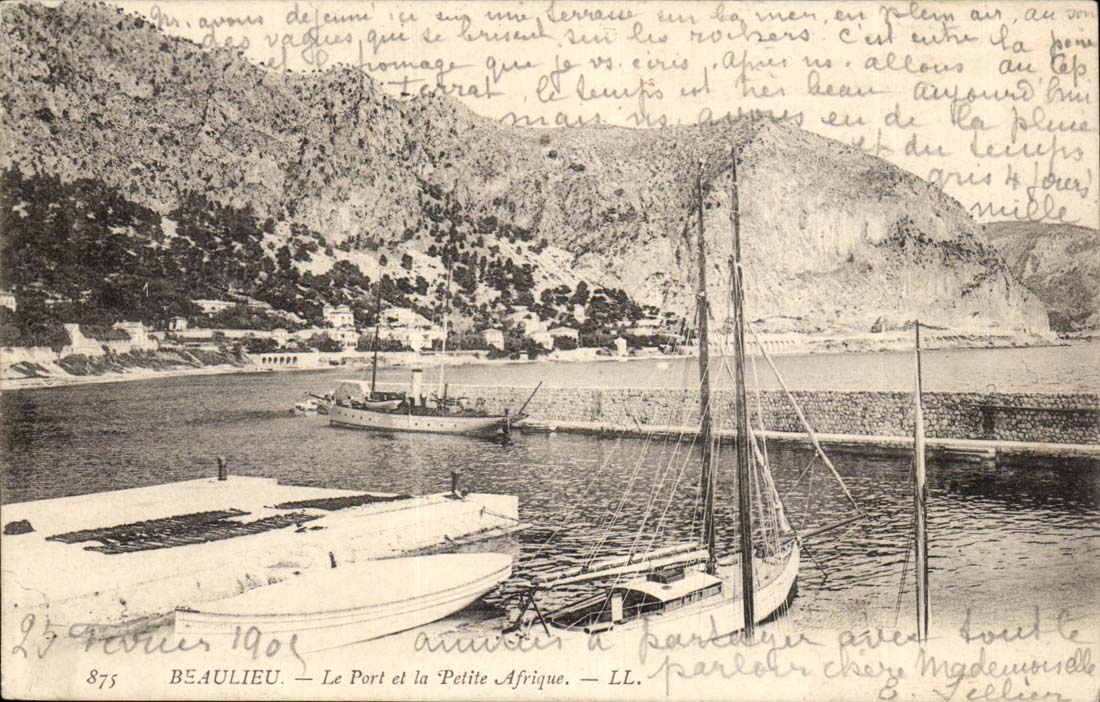 Ns. avons déjeuné ici sur une terrasse sur la mer, en plein air, au son
des vagues qui se brisent sur les rochers c'est entre la poire
et le fromage que je vs. écris. Après ns. allons au Cap
Ferrat, le temps est très beau aujourd'hui
mais ns. avons eu de la pluie
et du temps
gris 4 jours
mille
amitiés à partager avec tout le
parloir chère Mademoiselle
E. Tellier
25 Février 1905
875 BEAULIEU. — Le Port et la Petite Afrique. — LL.